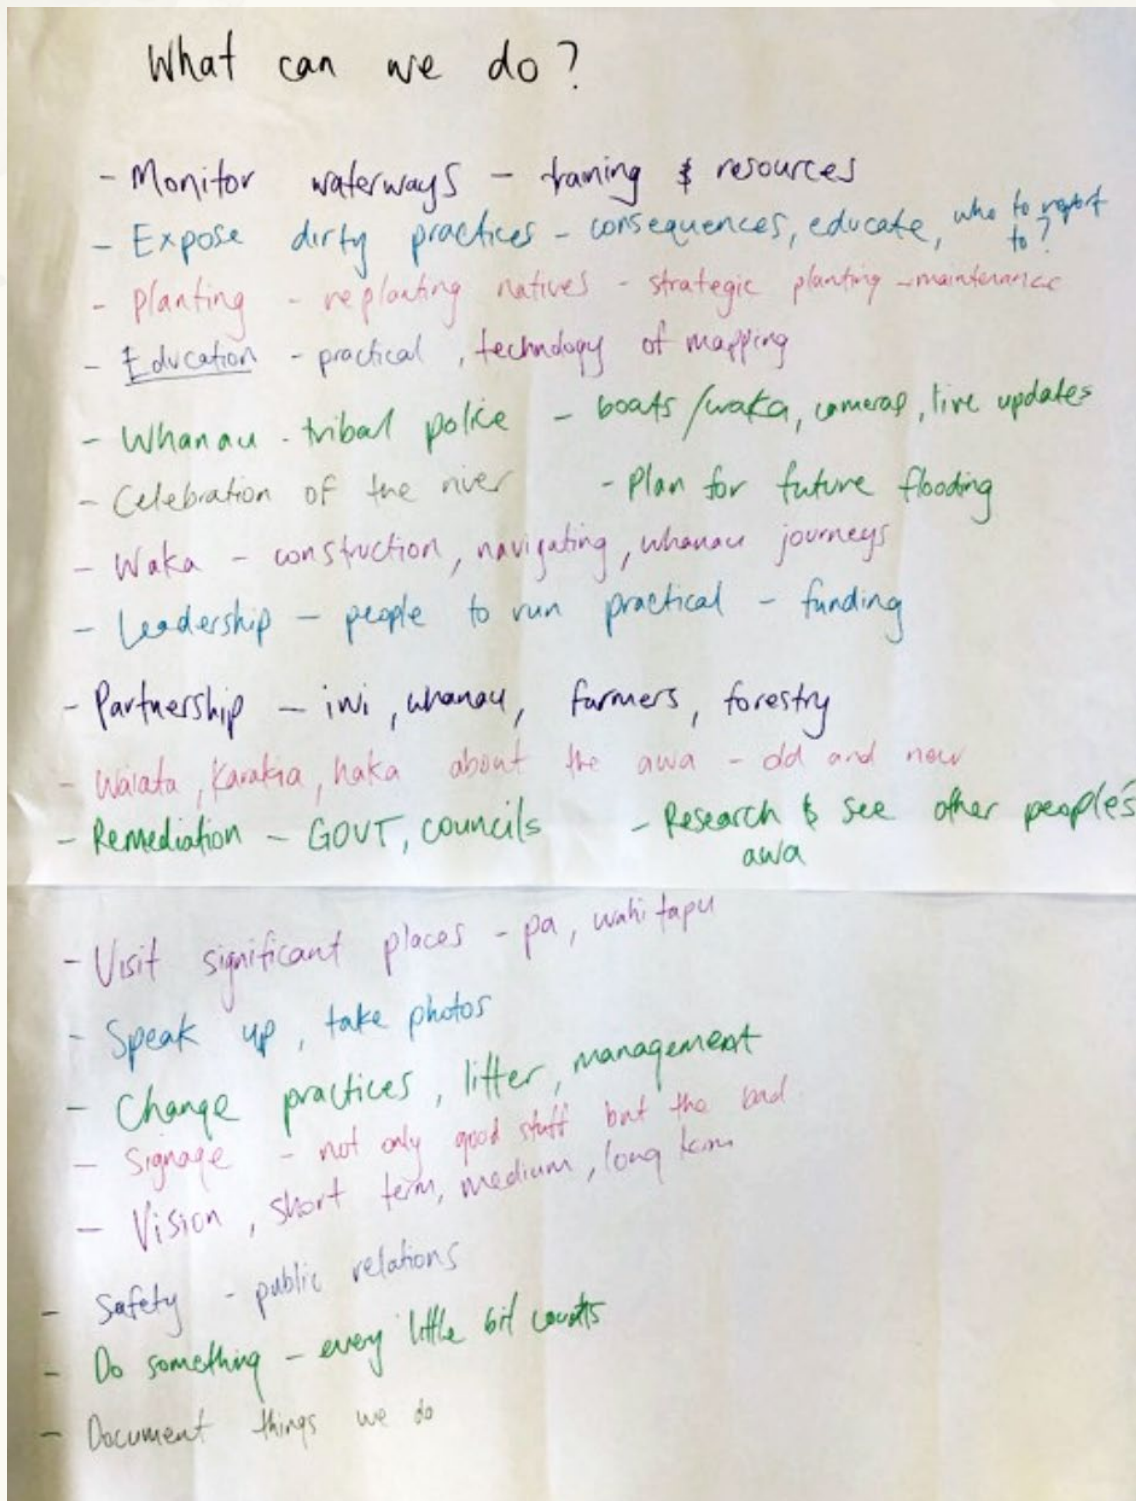 What can we do?
- Monitor waterways - training & resources
- Expose dirty practices - consequences, educate, who to report to?
- Planting - replanting natives - strategic planting - maintenance
- Education - practical, technology of mapping
- Whanau - tribal police - boats/waka, cameras, live updates
- Celebration of the river - Plan for future flooding
- Waka - construction, navigating, whanau journeys
- Leadership - people to run practical - funding
- Partnership - iwi, whanau, farmers, forestry
- Waiata, Karakia, haka about the awa - old and new
- Remediation - GOVT, councils - Research & see other people's
awa
- Visit significant places - pa, wahi tapu
- Speak up, take photos
- Change practices, litter, management
- Signage - not only good stuff but the bad
- Vision, short term, medium, long term
- Safety - public relations
- Do something - every little bit counts
- Document things we do